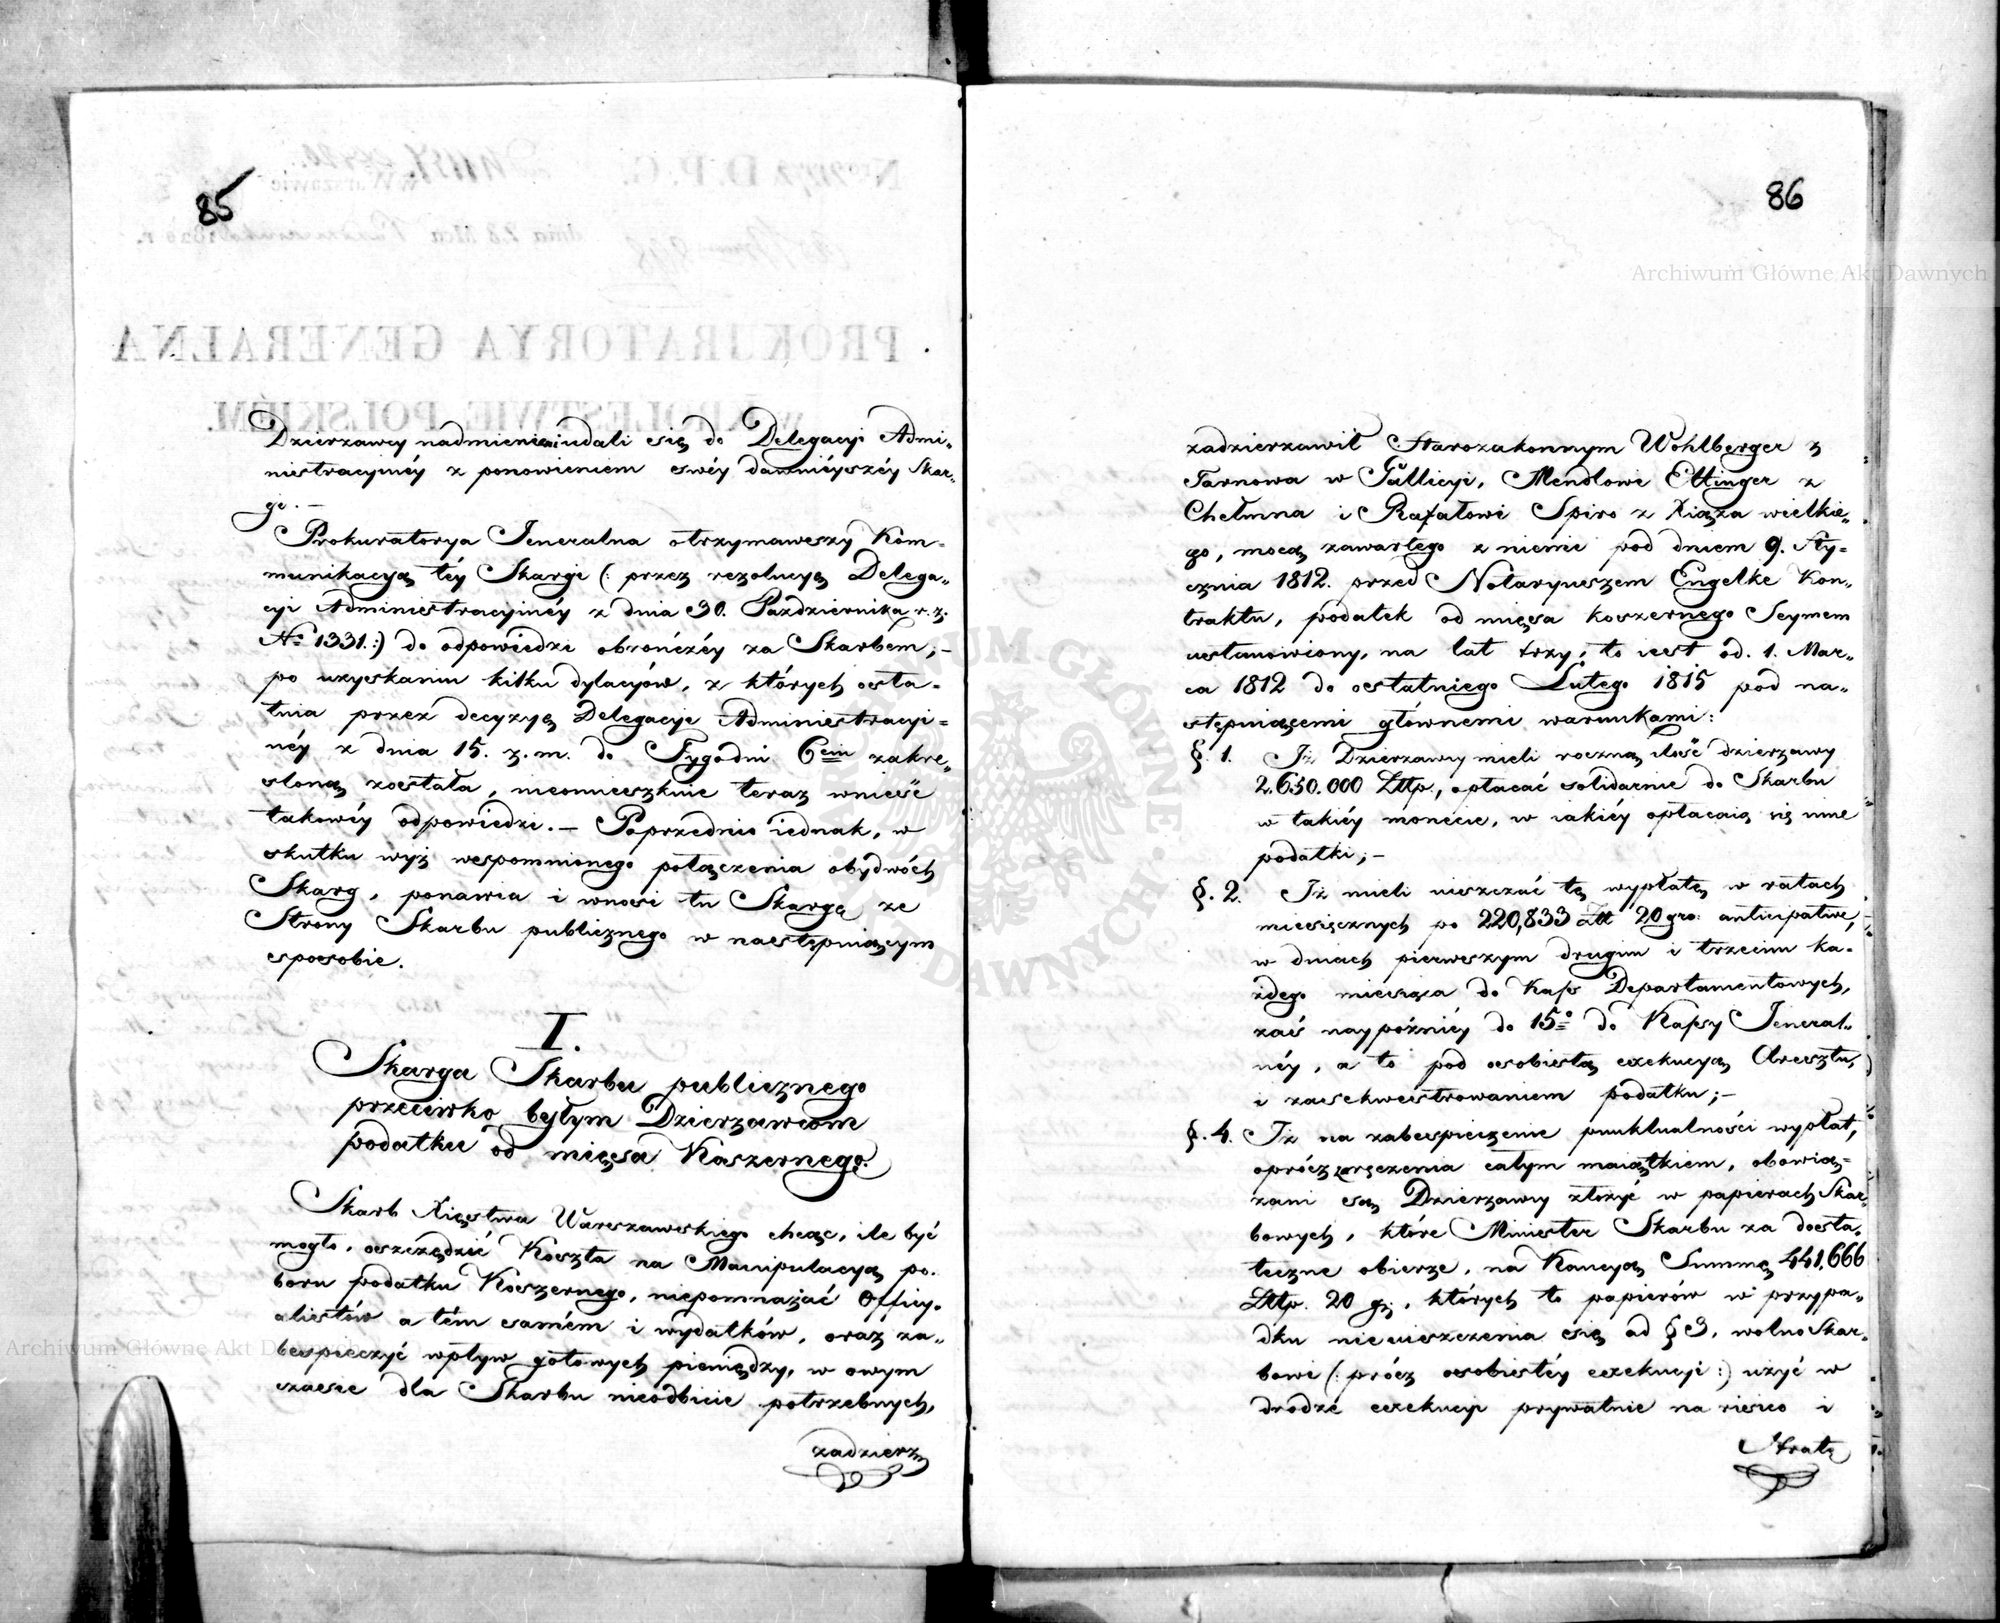 85
Dzierzawcy nadmienieni udali się do Delegacyi Admi-
nistracyinéy z ponowieniem swéy dawniéyszéy Skar-
gi. —
Prokuratorya Jeneralna otrzymawszy Kom-
munikacyą téy Skargi (: przez rezolucyą Delega-
cyi Administracyinéy z dnia 30. Października r. z.
No 1331. :) do odpowiedzi obrończéy za Skarbem, —
po uzyskaniu kilku dylacyów, z których osta-
tnia przez decyzyą Delegacyi Administracyi-
néy z dnia 15. z. m. do Tygodni 6ciu zakre-
sloną została, nieomieszknie teraz wnieść
takowéy odpowiedzi. — Poprzednio iednak, w
skutku wyż wspomnionego połączenia obydwóch
Skarg, ponawia i wnosi tu Skargę ze
Strony Skarbu publicznego w następuiącym
sposobie.
I.
Skarga Skarbu publicznego
przeciwko byłym Dzierzawcom
podatku od mięsa Koszernego.
Skarb Xięstwa Warszawskiego chcąc, ile być
mogło, oszczędzić Koszta na Manipulacyą po-
boru podatku Koszernego, niepomnażać Officy-
alistów a tém samém i wydatków, oraz za-
bespieczyć wpływ gotowych pieniędzy, w owym
czasie dla Skarbu nieodbicie potrzebnych,
zadzierz
86
zadzierzawił Starozakonnym Wohlberger z
Tarnowa w Gallicyi, Mendlowi Ettinger z
Chełmna i Rafałowi Spiro z Xiąża wielkie-
go, mocą zawartego z niemi pod dniem 9. Sty-
cznia 1812. przed Notaryuszem Engelke Kon-
traktu, podatek od mięsa koszernego Seymem
ustanowiony, na lat trzy, to iest od. 1. Mar-
ca 1812 do ostatniego Lutego 1815 pod na-
stępuiącemi głównemi warunkami:
§. 1. Iż Dzierzawcy mieli roczną ilość dzierzawy
2.650.000 Złtp, opłacać solidarnie do Skarbu
w takiéy monecie, w iakiéy opłacaią się inne
podatki; —
§. 2. Iż mieli uiszczać tę wypłatę w ratach
miesięcznych po 220,833 Złt 20 gro: anticipative,
w dniach pierwszym drugim i trzecim ka-
żdego miesiąca do Kass Departamentowych,
zaś naypóźniéy do 15o do Kassy Jeneral-
néy, a to pod osobistą exekucyą Aresztu,
i zasekwestrowaniem podatku; —
§. 4. Iż na zabespieczenie punktualności wypłat,
oprócz zaręczenia całym maiątkiem, obowią-
zani są Dzierzawcy złożyć w papierach Skar-
bowych, które Minister Skarbu za dosta-
teczne obierze, na Kaucyą Summę 441,666
Złtp. 20 gr, których to papierów w przypa-
dku nieuiszczenia się ad § 3, wolno Skar-
bowi (: prócz osobistéy exekucyi :) użyć w
drodze exekucyi prywatnie na risico i
Stratę
Archiwum Główne Akt Dawnych
Archiwum Główne Akt Dawnych